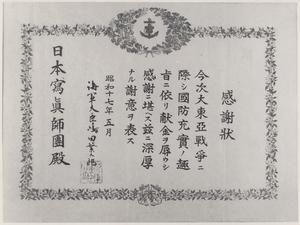 感謝狀
今次大東亞戰爭ニ
際シ國防充實ノ趣
旨ニ依リ獻金ヲ辱ウシ
感謝ニ堪ヘス玆ニ深厚
ナル謝意ヲ表ス
昭和十七年五月
海軍大臣嶋田繁太郎
日本寫眞師團殿